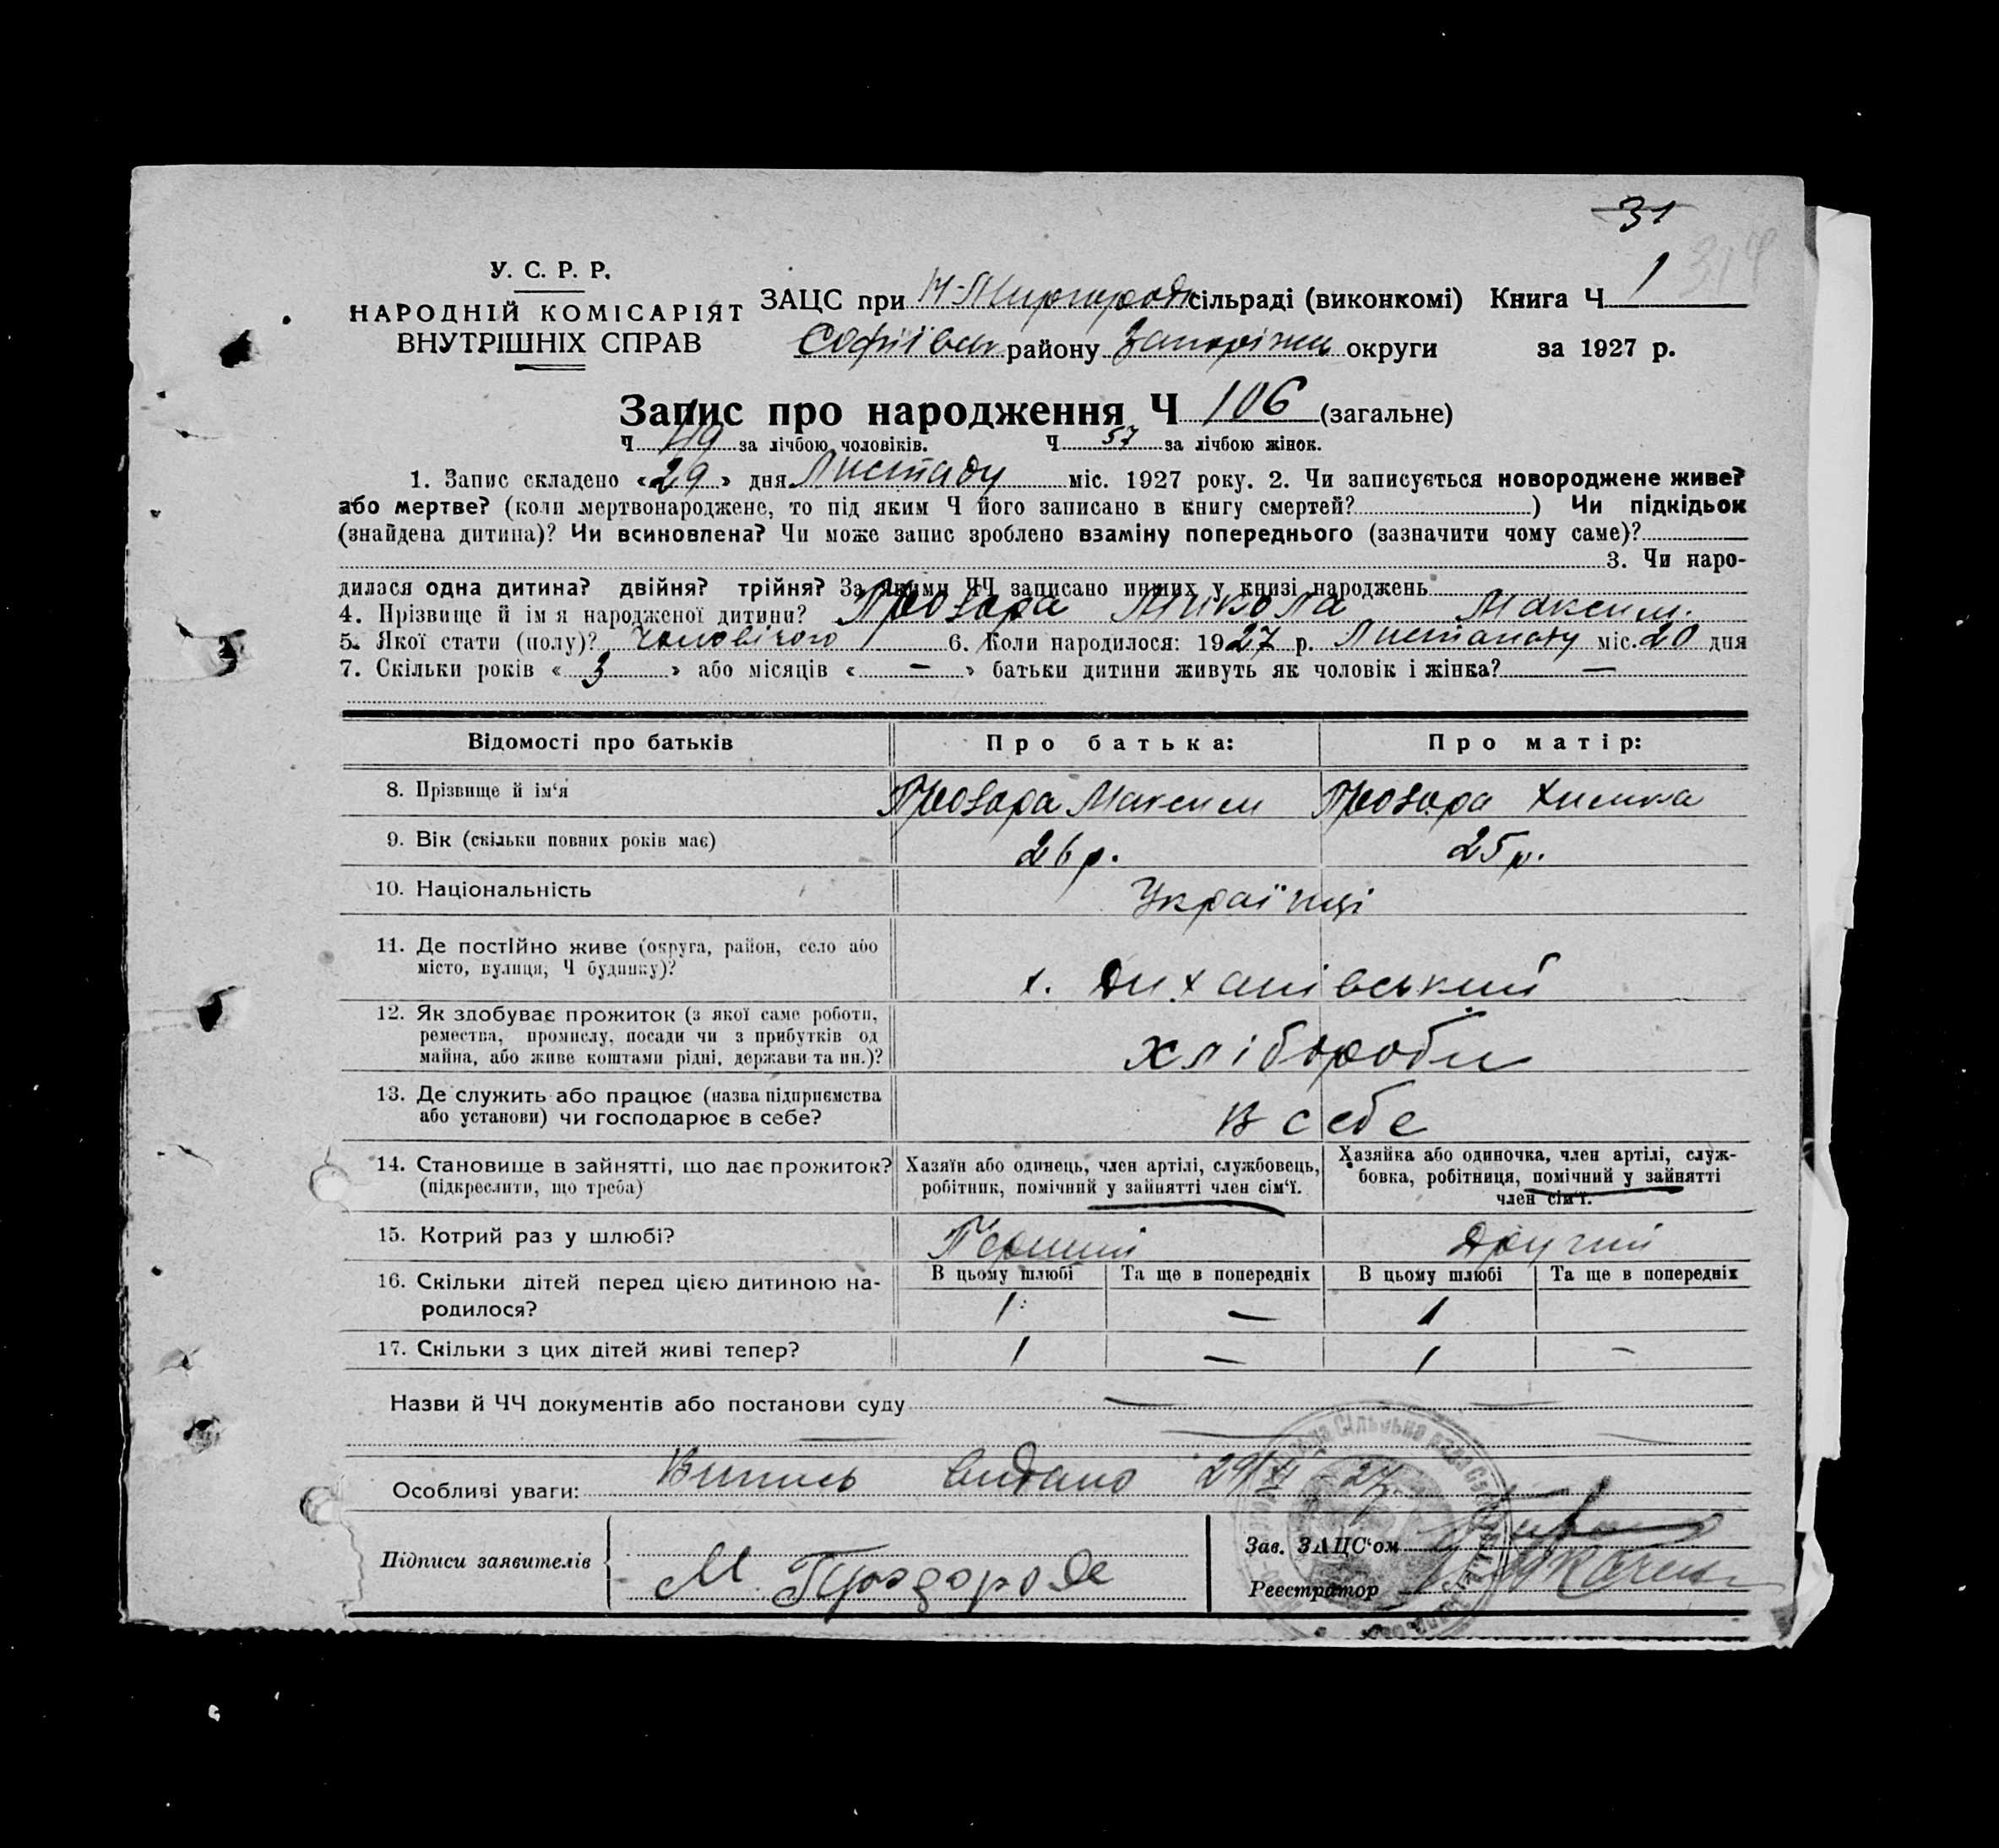 31
314
У. С. Р. Р.
НАРОДНІЙ КОМІСАРІЯТ
ВНУТРІШНІХ СПРАВ
ЗАЦС при Н-Миргородсільраді (виконкомі) Книга Ч 1
Софіївськ району Запоріжж округи за 1927 р.
Запис про народження Ч 106 (загальне)
Ч 49 за лічбою чоловіків. Ч 57 за лічбою жінок.
1. Запис складено «29» дня Листаду міс. 1927 року. 2. Чи записується новороджене живе?
або мертве? (коли мертвонароджене, то під яким Ч його записано в книгу смертей? ) Чи підкідьок
(знайдена дитина)? Чи всиновлена? Чи може запис зроблено взаміну попереднього (зазначити чому саме)?
3. Чи наро-
дилася одна дитина? двійня? трійня? За якими ЧЧ записано инших у книзі народжень
4. Прізвище й ім я народженої дитини? Микола Максим.
5. Якої стати (полу)? Чоловічого 6. Коли народилося: 1927 р. Листопаду міс. 20 дня
7. Скільки років « 3 » або місяців « — » батьки дитини живуть як чоловік і жінка? —
Відомості про батьків Про батька: Про матір:
8. Прізвище й ім‘я Максим Химка
9. Вік (скільки повних років має) 26 р. 25 р.
10. Національність Українці
11. Де постійно живе (округа, район, село або
місто, вулиця, Ч будинку)? х.
12. Як здобуває прожиток (з якої саме роботи,
ремества, промислу, посади чи з прибутків од
майна, або живе коштами рідні, держави та ин.)? хлібороби
13. Де служить або працює (назва підприємства
або установи) чи господарює в себе? в себе
14. Становище в зайнятті, що дає прожиток?
(підкреслити, що треба)
Хазяїн або одинець, член артілі, службовець,
робітник, помічний у зайнятті член сім‘ї.
Хазяйка або одиночка, член артілі, служ-
бовка, робітниця, помічний у зайнятті
член сім‘ї.
15. Котрий раз у шлюбі? Перший Другий
16. Скільки дітей перед цією дитиною на-
родилося?
В цьому шлюбі Та ще в попередніх В цьому шлюбі Та ще в попередніх
1 — 1
17. Скільки з цих дітей живі тепер? 1 — 1 —
Назви й ЧЧ документів або постанови суду — —
Особливі уваги: Випись видано 29/XI - 27.
Підписи заявителів М.
Зав. ЗАЦС‘ом
Реєстратор